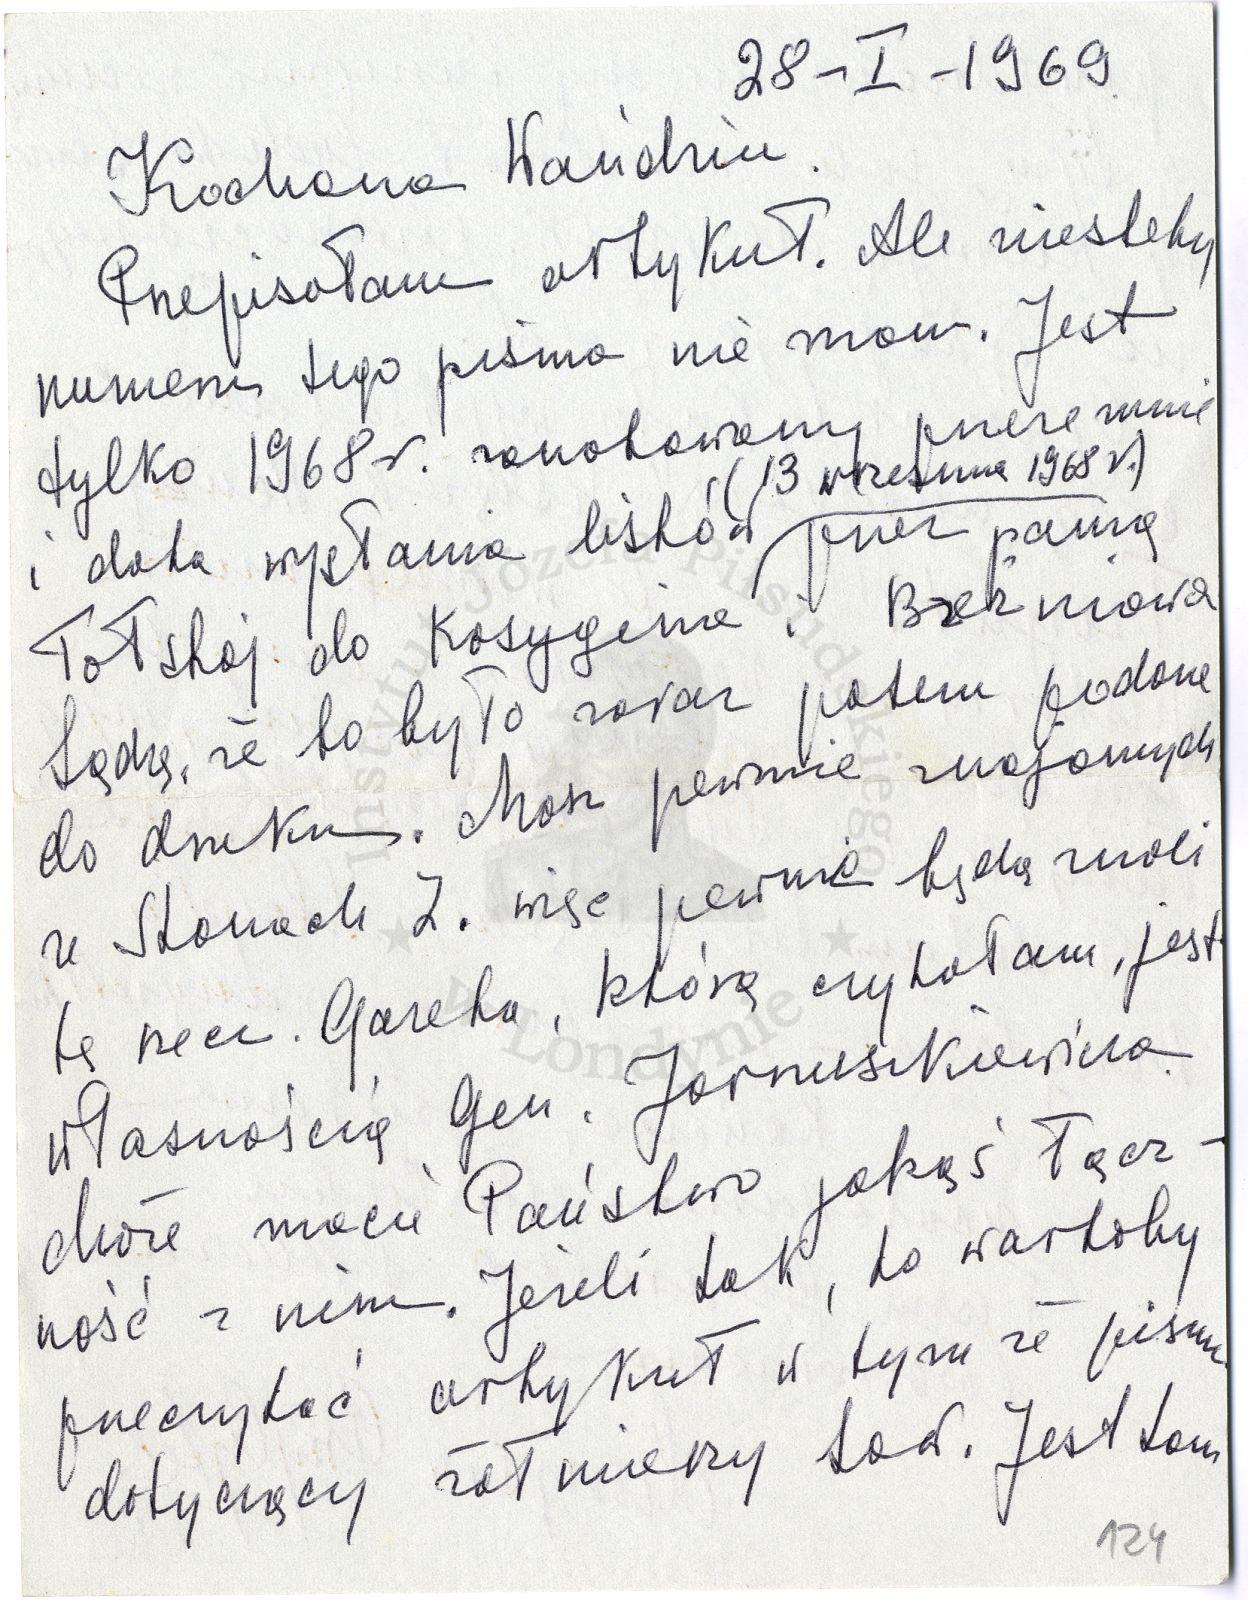 28-I-1969
Kochana Wańdziu.
Przepisałam artykuł. Ale niestety
numeru tego pisma nie mam. Jest
tylko 1968 r. zanotowany przeze mnie
(13 września 1968 r.)
i data wysłania listów przez panią
Tołstoj do Kosygina i Breżniowa
Sądzę, że to było zaraz potem podane
do druku. Masz pewnie znajomych
w Stanach Z. więc pewnie będą znali
tę rzecz. Gazeta, którą czytałam, jest
własnością Gen. Jarnuszkiewicza
Może macie Państwo jakąś łącz-
ność z nim. Jeżeli tak, to wartoby
przeczytać artykuł w tym że piśmie
dotyczący żołnierzy sow. Jest tam
124
Instytut Józefa Piłsudskiego
w Londynie